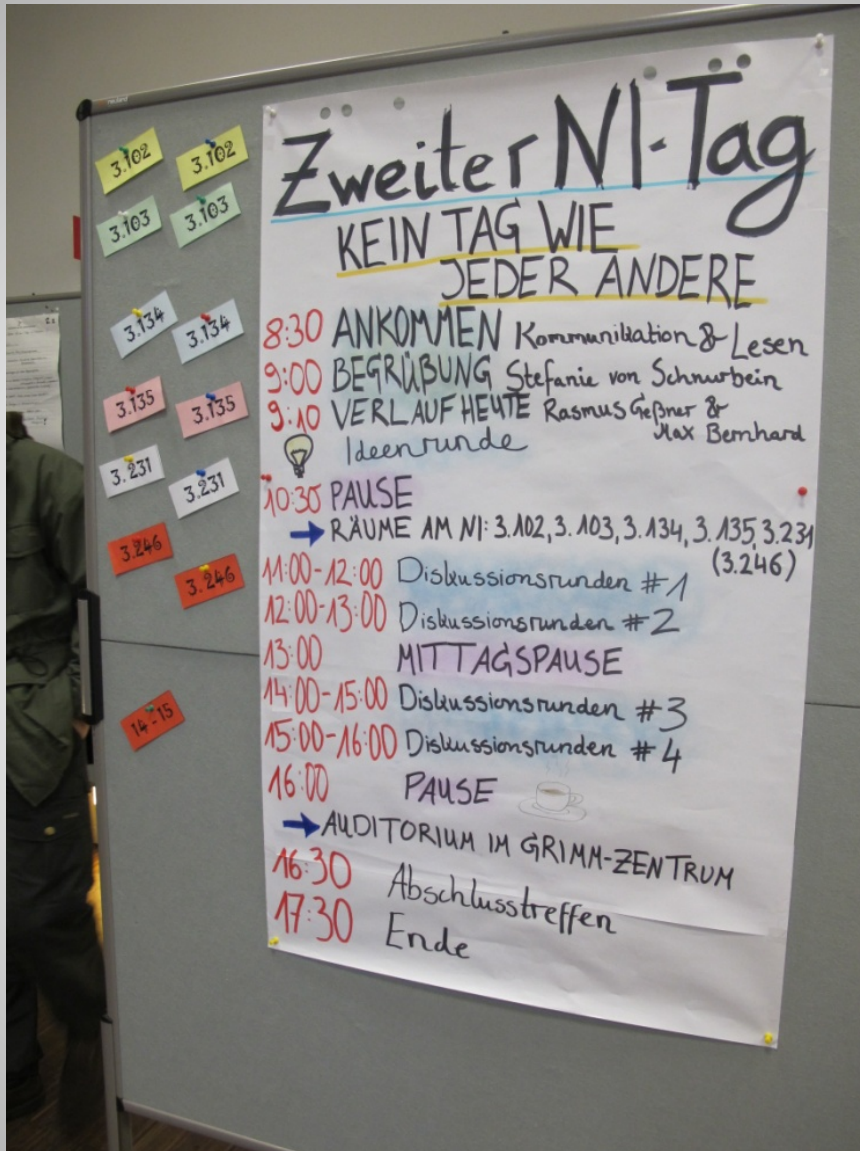 3.102
3.102
3.103
3.103
3.134
3.134
3.135
3.135
3.231
3.231
3.246
3.246
14-15
Zweiter NI-Tag
KEIN TAG WIE
JEDER ANDERE
8:30 ANKOMMEN Kommunikation & Lesen
9:00 BEGRÜßUNG Stefanie von Schnurbein
9:10 VERLAUF HEUTE Rasmus Geßner &
Max Bernhard
Ideenrunde
10:30 PAUSE
→ RÄUME AM NI: 3.102, 3.103, 3.134, 3.135, 3.231
(3.246)
11:00-12:00 Diskussionsrunden #1
12:00-13:00 Diskussionsrunden #2
13:00 MITTAGSPAUSE
14:00-15:00 Diskussionsrunden #3
15:00-16:00 Diskussionsrunden #4
16:00 PAUSE
→ AUDITORIUM IM GRIMM-ZENTRUM
16:30 Abschlusstreffen
17:30 Ende